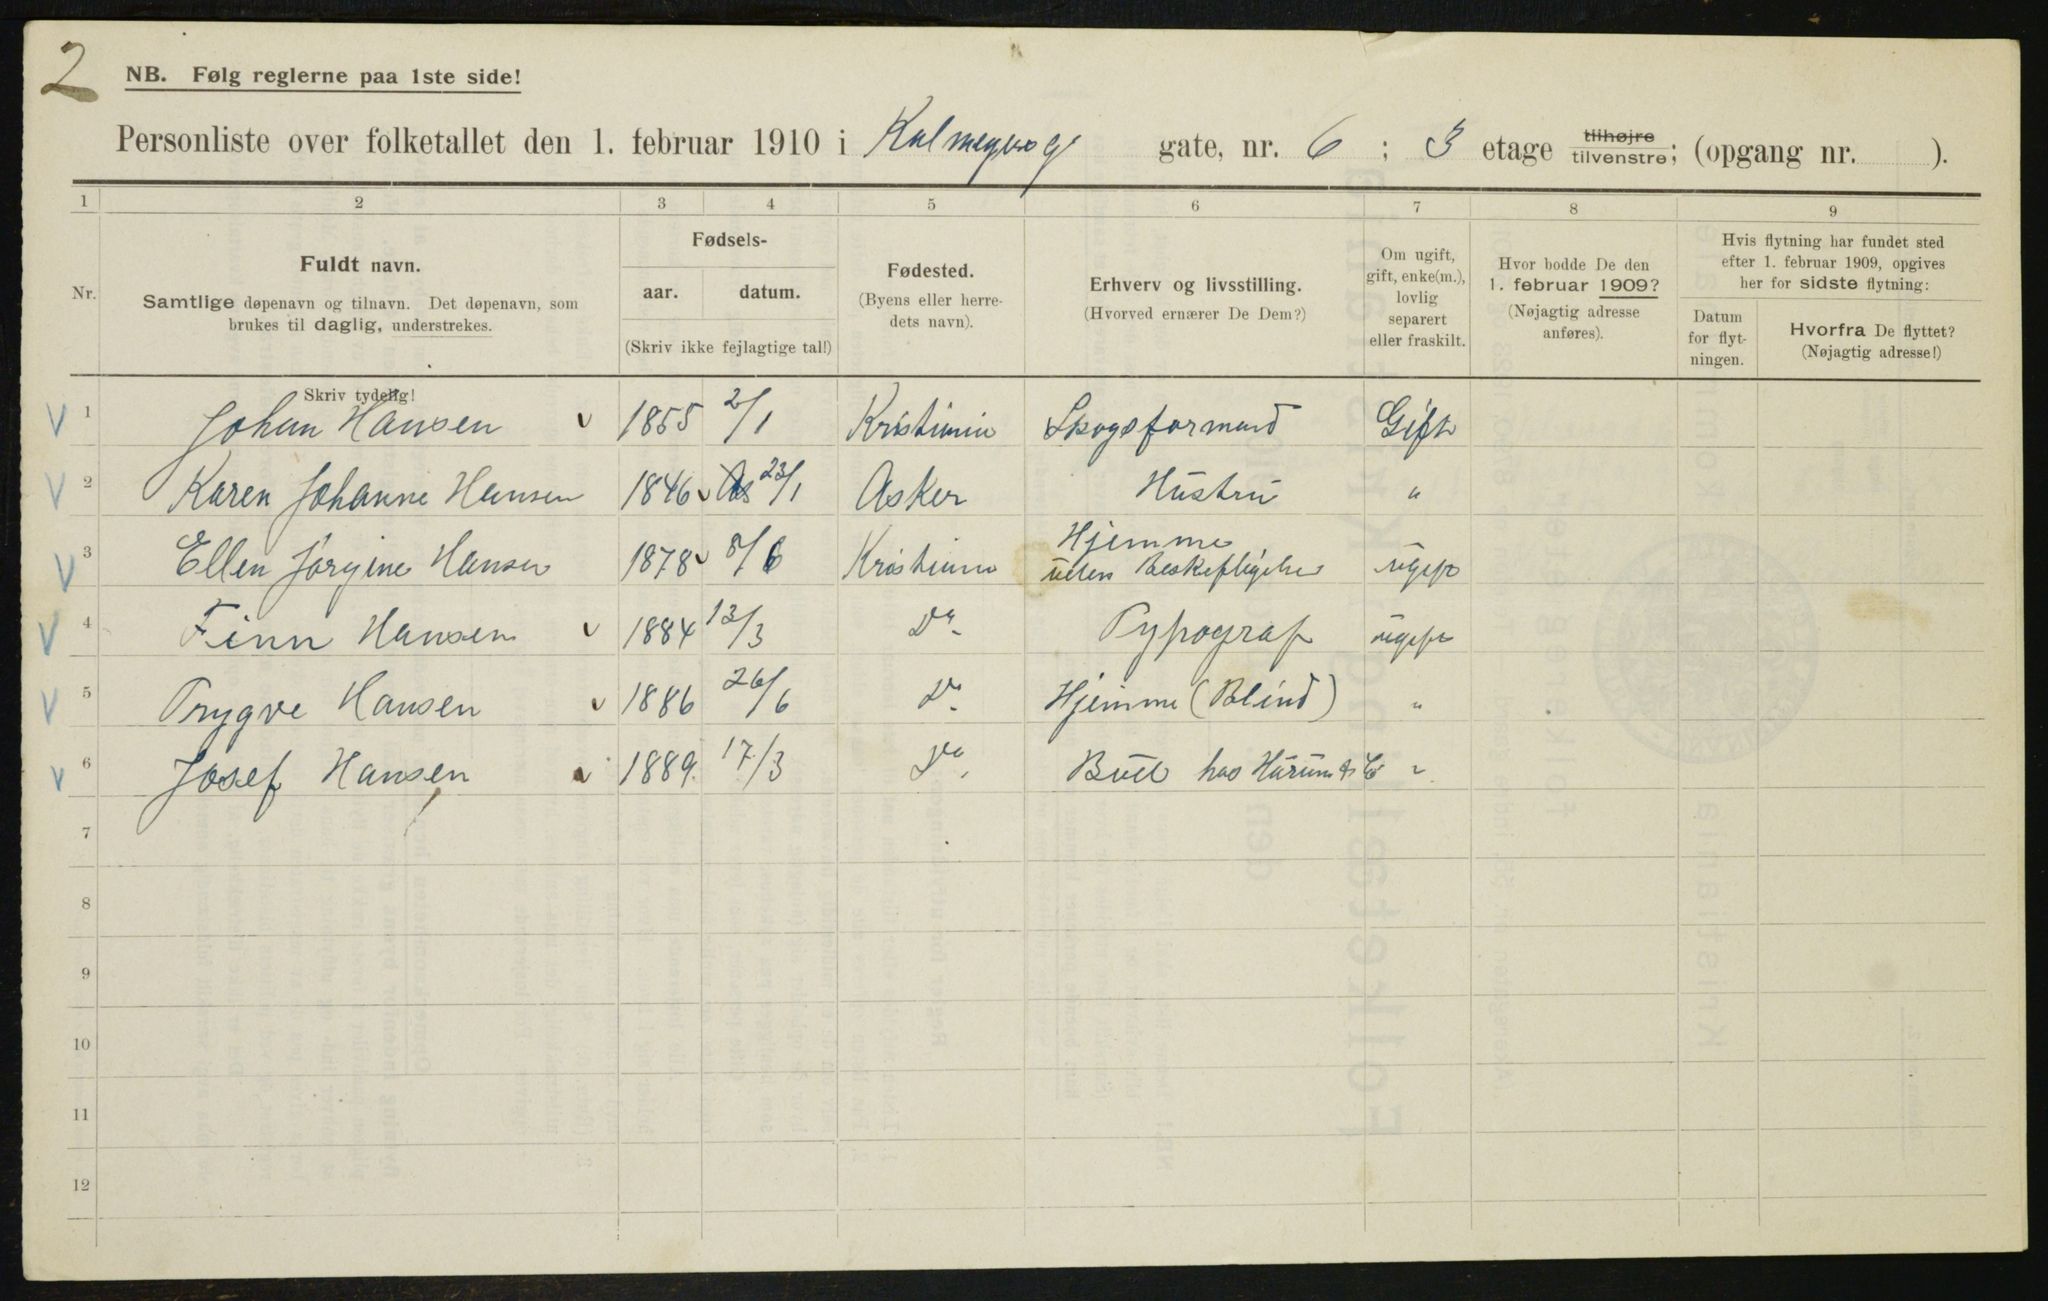 2
NB. Følg reglerne paa 1ste side!
Personliste over folketallet den 1. februar 1910 i gate, nr. 6 ; 3 etage tilhøjre tilvenstre; (opgang nr. ).
1 2 3 4 5 6 7 8 9
Nr.
Fuldt navn.
Samtlige døpenavn og tilnavn. Det døpenavn, som
brukes til daglig, understrekes.
Fødsels-
aar. datum.
(Skriv ikke fejlagtige tal!)
Fødested.
(Byens eller herre-
dets navn).
Erhverv og livsstilling.
(Hvorved ernærer De Dem?)
Om ugift,
gift, enke(m.),
lovlig
separert
eller fraskilt.
Hvor bodde De den
1. februar 1909?
(Nøjagtig adresse
anføres).
Hvis flytning har fundet sted
efter 1. februar 1909, opgives
her for sidste flytning:
Datum
for flyt-
ningen.
Hvorfra De flyttet?
(Nøjagtig adresse!)
Skriv tydelig!
1 Johan Hansen 1855 2/1 Kristiania Skogsformand Gift
2 Karen Johanne Hansen 1846 As 23/1 Asker Hustru "
3 Ellen Jørgine Hansen 1878 8/6 Kristiania Hjemme uten Beskeftigelse ugift
4 Finn Hansen 1884 13/3 Do. Typograf ugift
5 Trygve Hansen 1886 26/6 Do. Hjemme (Blind) "
6 Josef Hansen 1889. 17/3 Do. Bud hos "
7
8
9
10
11
12